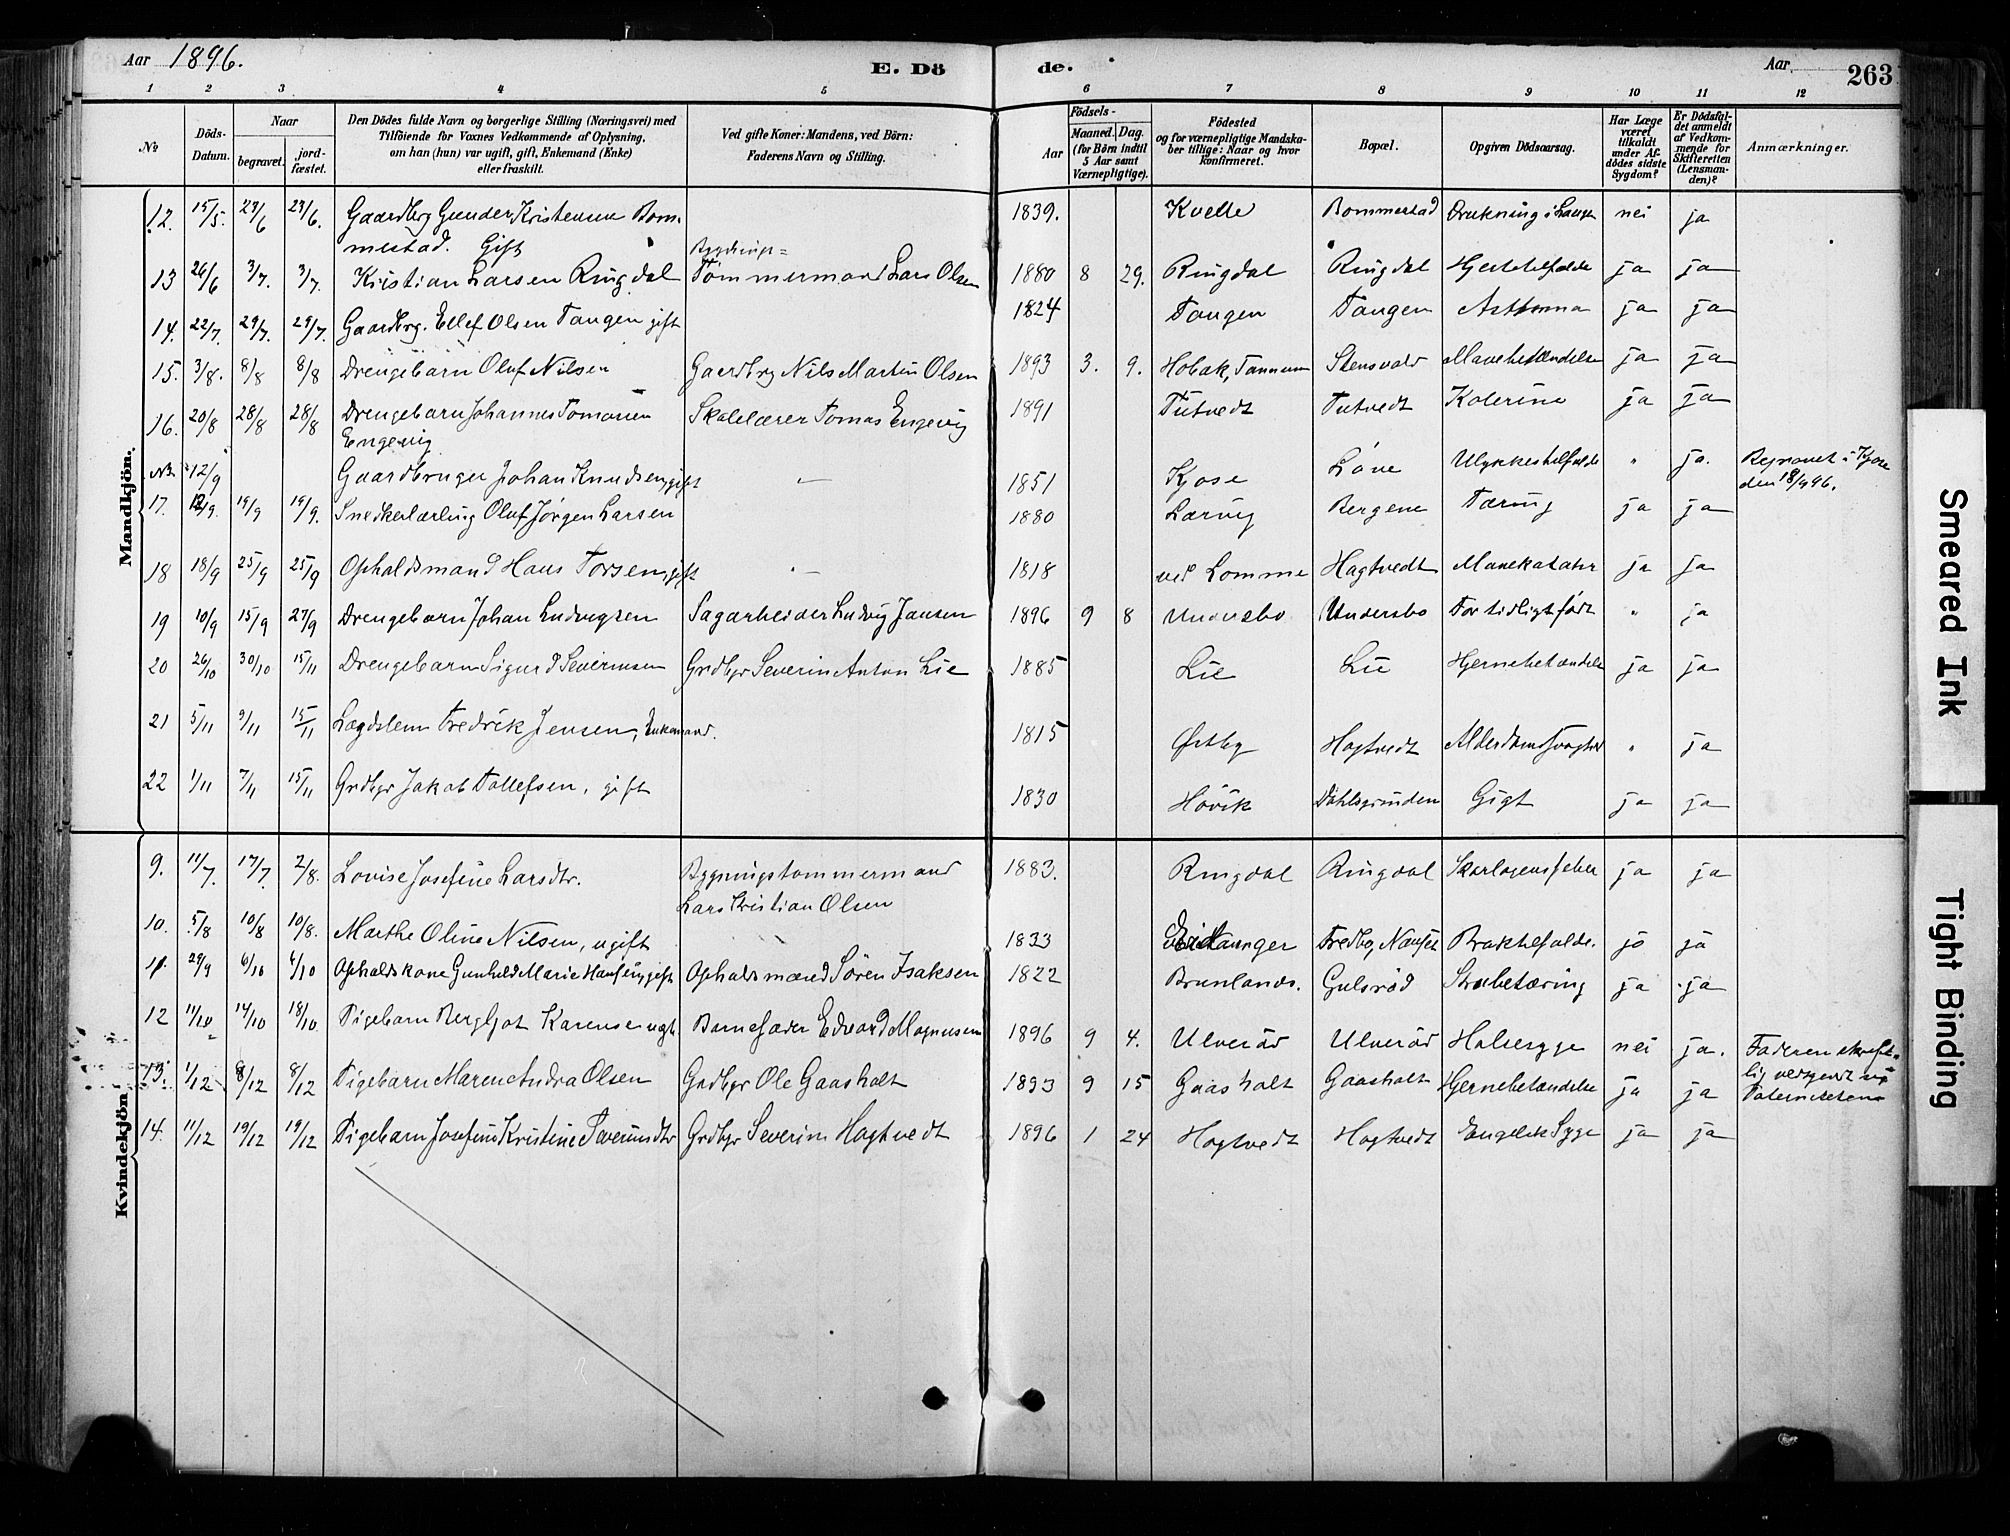 Aar 1896. E. Dö de. Aar 263
1 2 3 4 5 6 7 8 9 10 11 12
No
Döds-Datum.
Naar
begravet.
jord-fæstet.
Den Dödes fulde Navn og borgerlige Stilling (Næringsvei) med
Tilföiende for Voxnes Vedkommende af Oplysning,
om han (hun) var ugift, gift, Enkemand (Enke)
eller fraskilt.
Ved gifte Koner: Mandens, ved Börn:
Faderens Navn og Stilling.
Födsels-
Aar
Maaned. Dag.
(for Börn indtil
5 Aar samt
Værnepligtige).
Födested
og for værnepligtige Mandska-
ber tillige: Naar og hvor
konfirmeret.
Bopæl.
Opgiven Dödsaarsag.
Har Læge
været
tilkaldt
under Af-
dödes sidste
Sygdom?
Er Dödsfal-
det anmeldt
af Vedkom-
mende for
Skifteretten
(Lensman-
den)?
Anmærkninger.
Mandkjön.
12. 15/5. 23/6 23/6. Gaardbrg Gunder Kristensen Bom- 1839. Kvelle Bommestad Drukning i Laagen nei ja
mestad. Gift
Bygnings=
13 26/6 3/7. 3/7. Kristian Larsen Ringdal Tömmermand Lars Olsen 1880 8 29. Ringdal Ringdal Hjertefeil ja ja
14. 22/7. 29/7. 29/7. Gaardbrg. Ellef Olsen Tangen gift 1824 Tangen Tangen Asthma ja ja
15. 3/8. 8/8 8/8 Drengebarn Oluf Nilsen Gaardbrg Nils Martin Olsen 1893 3. 9. Hobæk, Tanum Stensvald Mavebetændelse ja ja
16. 20/8 28/8 28/8 Drengebarn Johannes Tomassen Skolelærer Tomas Engevig 1891 Tutvedt Tutvedt Kolerine ja ja
Engevig
NB. 12/9 Gaardbruger Johan Knudsen, gift — 1851 Kjose Löve Ulykkestilfælde " ja. Begravet i Kjose
den 18/9 96.
17. 12/9. 19/9 19/9. Snedkerlærling Oluf Jörgen Larsen 1880 Larvig Bergene Tæring ja ja
18 18/9 25/9 25/9 Opholdsmand Hans Torsen, gift — 1818 ved Lomme Hagtvedt Mavekatarr ja ja
19 10/9 15/9 27/9 Drengebarn Johan Ludvigsen Sagarbeider Ludvig Jansen 1896 9 8 Undersbo Undersbo For tidligt födt " ja
20 26/10 30/10 15/11 Drengebarn Sigurd Severinsen Grdbgr Severin Anton Lie 1885 Lie Lie Hjernebetændelse ja ja
21 5/11 9/11 15/11 Lægdslem Fredrik Jensen, Enkemand. 1815 Østby Hagtvedt Alderdomssvaghed " ja
22 1/11 7/11 15/11 Grdbgr Jakob Tollefsen, gift 1830 Hövik Dahlsgrinden Gigt ja ja
Kvindekjön
9. 11/7. 17/7. 2/8. Lovise Josefine Larsdtr. Bygningstømmermand 1883. Ringdal Ringdal Skarlagensfeber ja ja
Lars Kristian Olsen
10. 5/8 10/8 10/8. Marthe Oline Nilsen, ugift 1833 Eidanger Fredbo, Nanset Broktilfælde. ja ja
11. 29/9 6/10 6/10 Opholdskone Gunhild Marie Hansen, gift Opholdsmand Sören Isaksen 1822 Brunlands. Gulsröd Strubetæring ja ja
12 11/10 14/10 18/10. Pigebarn Bergljot Karense uægte Barnefader Edvard Magnusen 1896 9 4. Ulveröd Ulveröd Halsesyge nei ja. Faderen skrift-
lig vedgaat sig
Paterniteten
13. 1/12 8/12 8/12 Pigebarn Maren Andra Olsen Grdbgr Ole Gaasholt 1893 9 15 Gaasholt Gaasholt Hjernebetændelse ja ja
14. 11/12 19/12 19/12 Pigebarn Josefine Kristine Severinsdtr Grdbgr Severin Hagtvedt 1896 1 24 Hagtvedt Hagtvedt Engelsk Syge ja ja
Smeared Ink
Tight Binding